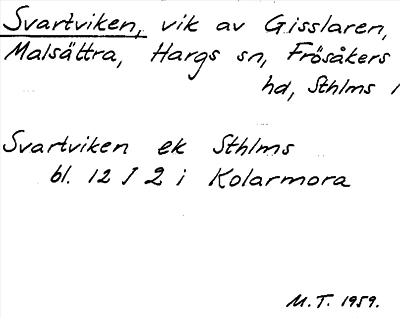 Svartviken, vik av Gisslaren,
Malsättra, Hargs sn, Frösåkers
hd, Sthlms l
Svartviken ek Sthlms
bl. 12 I 2 i Kolarmora
M.T. 1959.